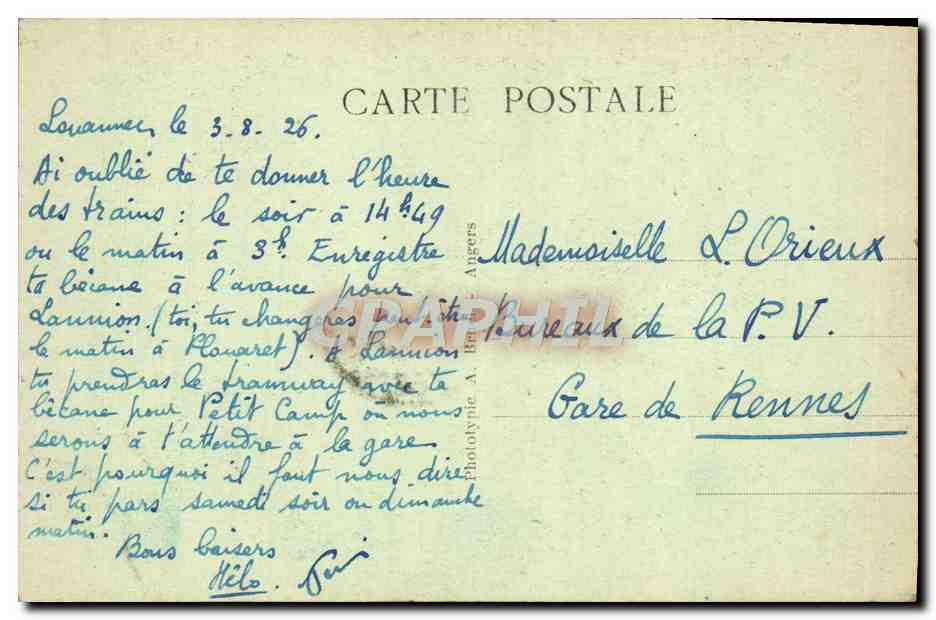 CARTE POSTALE
Louannec, le 3-8-26.
Ai oublié de te donner l'heure
des trains : le soir à 14h49
ou le matin à 3h. Enrégistre
ta bécane à l'avance pour
Lannion. (toi, tu changeras peut-être
le matin à Plouaret). A Lannion
tu prendras le tramway avec ta
bécane pour Petit Camp où nous
serons à t'attendre à la gare
C'est pourquoi il faut nous dire
si tu pars samedi soir ou dimanche
matin.
Bons baisers
Hélo.
Phototypie A. Angers
Mademoiselle L. Orieux
Bureaux de la P. V.
Gare de Rennes
CPAPHIL